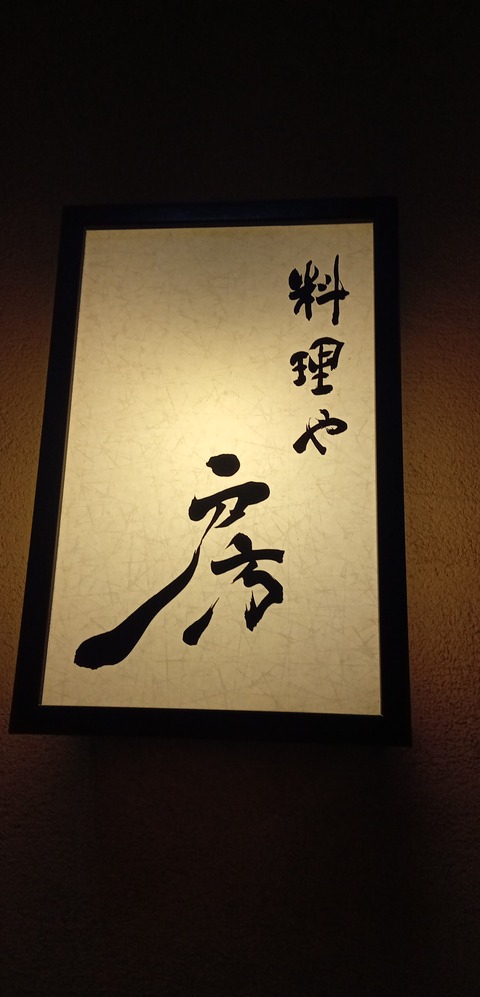 料理や
房